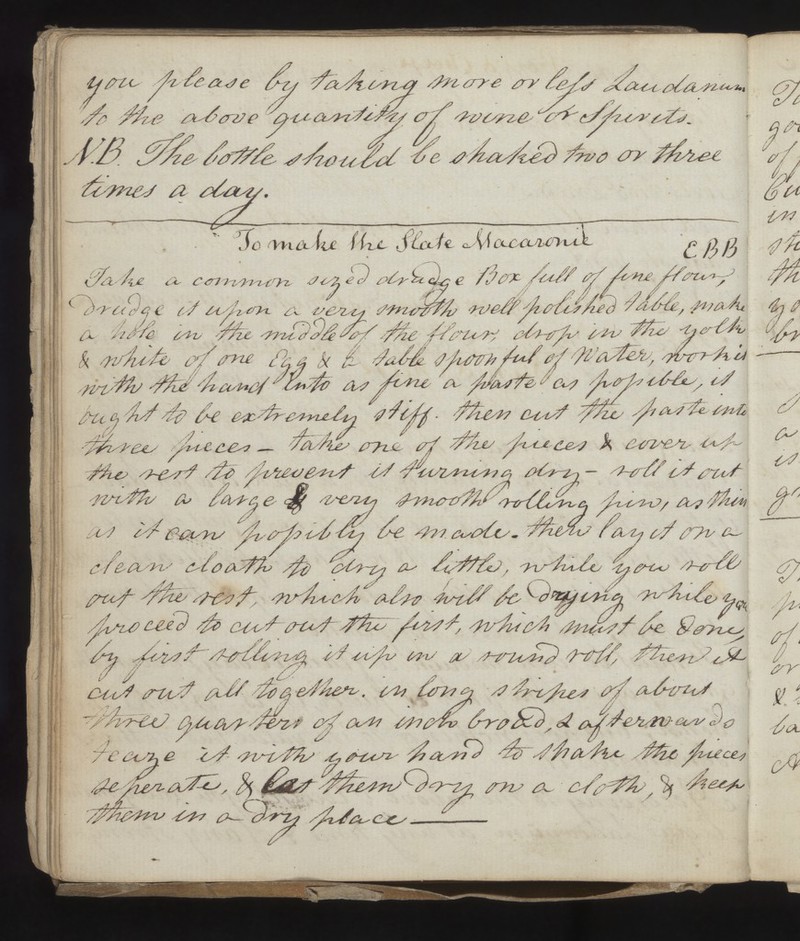 you please by taking more or less Laudanum
to the above quantity of wine or Spirits.
N.B. The bottle should be shaked two or three
times a day.
To make the Flate Macaronie
E B B
Take a common sized drudge Box full of fine flour,
drudge it upon a very smooth well polished table, make
a hole in the middle of the flour, drop in the yolk
& white of one Egg & a table spoonful of Water, work it
with the hand into as fine a paste as possible, it
ought to be extremely stiff. then cut the paste into
three pieces – take one of the pieces & cover up
the rest to prevent it turning dry – roll it out
with a large & very smooth rolling pin, as thin
as it can possibly be made. then lay it on a
clean cloath to dry a little, while you roll
out the rest, which also will be drying while you
proceed to cut out the first, which must be done,
by first rolling it up in a round roll, then it
cut out all together. in long stripes of about
three quarters of an inch broad, & afterwards
teaze it with your hand to shake the pieces
seperate, & let them dry on a cloth, & keep
them in a dry place —